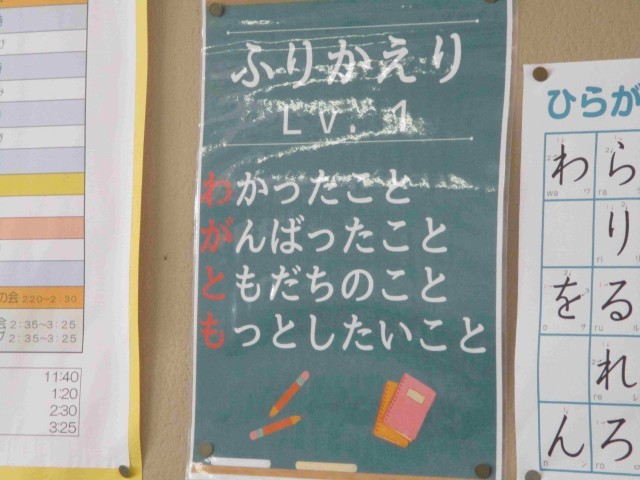 ふりかえり
Lv. 1
わかったこと
がんばったこと
ともだちのこと
もっとしたいこと
の会 2:20~2:30
会 2:35~3:25
2:35~3:25
11:40
1:20
2:30
3:25
ひらが
わ ら
wa ワ ra
り
ri リ
を る
o ヲ ru ル
れ
re レ
ん ろ
n ン ro